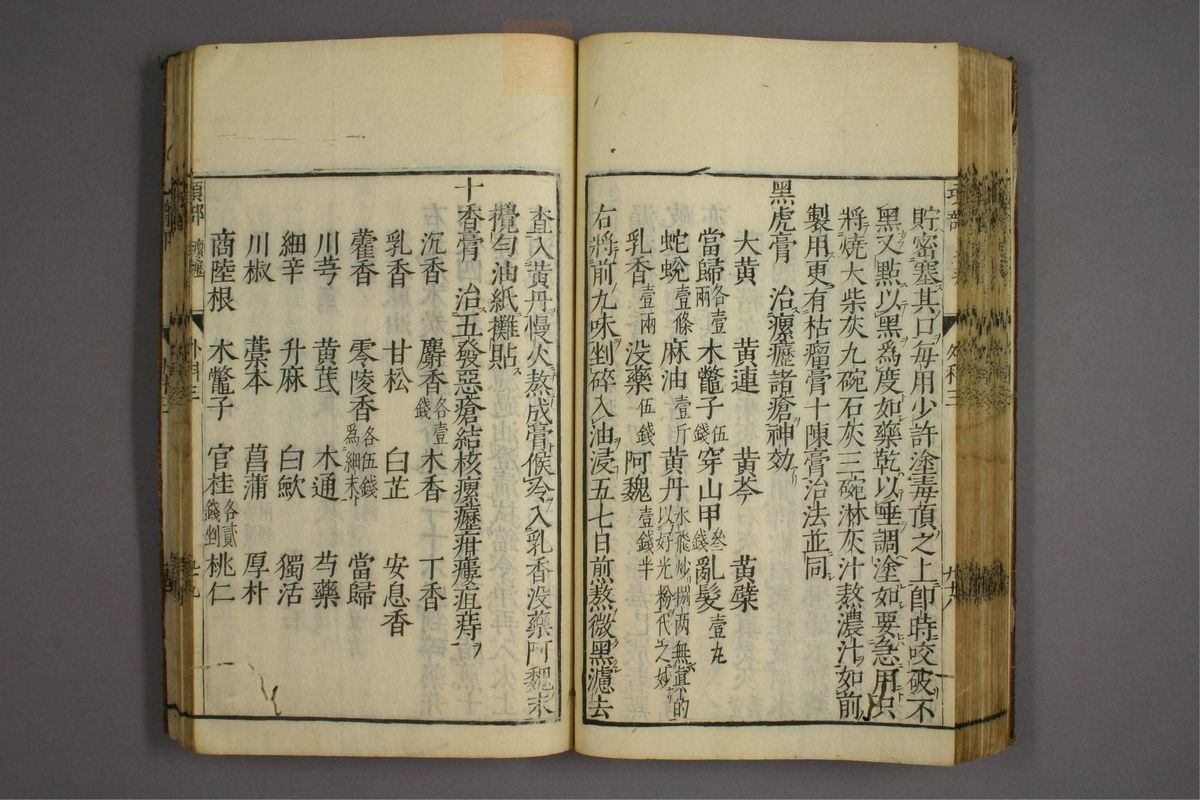 貯密塞其口每用少許塗毒頂之上即時咬破不
黑又點以黑爲度如藥乾以唾調塗如要急用只
將燒大柴灰九碗石灰三碗淋灰汁熬濃汁如前
製用更有枯瘤膏十陳膏治法並同
黑虎膏 治瘰癧諸瘡神効
大黄 黄連 黄芩 黄蘗
當歸各壹兩 木鼈子伍錢 穿山甲叁錢 亂髮壹丸
蛇蛻壹條 麻油壹斤 黄丹水飛炒捌两無真的以好光粉代之妙
乳香壹兩 没藥伍錢 阿魏壹錢半
右將前九味剉碎入油浸五七日煎熬微黑濾去
査入黄丹慢火熬成膏候冷入乳香没藥阿魏末
攪匀油紙攤貼
十香膏 治五發惡瘡結核瘰癧疳瘻疽痔
沉香 麝香各壹錢 木香 丁香
乳香 甘松 白芷 安息香
藿香 零陵香各伍錢爲細末 當歸
川芎 黄芪 木通 芍藥
細辛 升麻 白蘞 獨活
川椒 藁本 菖蒲 厚朴
商陸根 木鼈子 官桂各貳錢剉 桃仁
項部 瘰癧 外科三 廿九